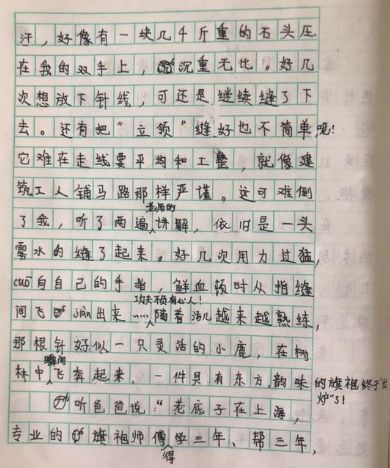 汗，好像有一块几千斤重的石头压
在我的双手上，沉重无比。好几
次想放下针线，可还是继续缝了下
去。还有把“立领”缝好也不简单呢！
它难在走线要平均和工整，就像建
筑工人铺马路那样严谨。这可难倒
了我，听了两遍老师的讲解，依旧是一头
雾水的缝了起来。好几次用力过猛，
cuō向自己的手指，鲜血顿时从指缝
间飞jiàn出来……功夫不负有心人！随着活儿越来越熟练，
那根针好似一只灵活的小鹿，在树
林中瞬间飞奔起来，一件具有东方韵味的旗袍终于“出炉”了！
听爸爸说：“老底子在上海，
专业的旗袍师傅得学三年、帮三年，